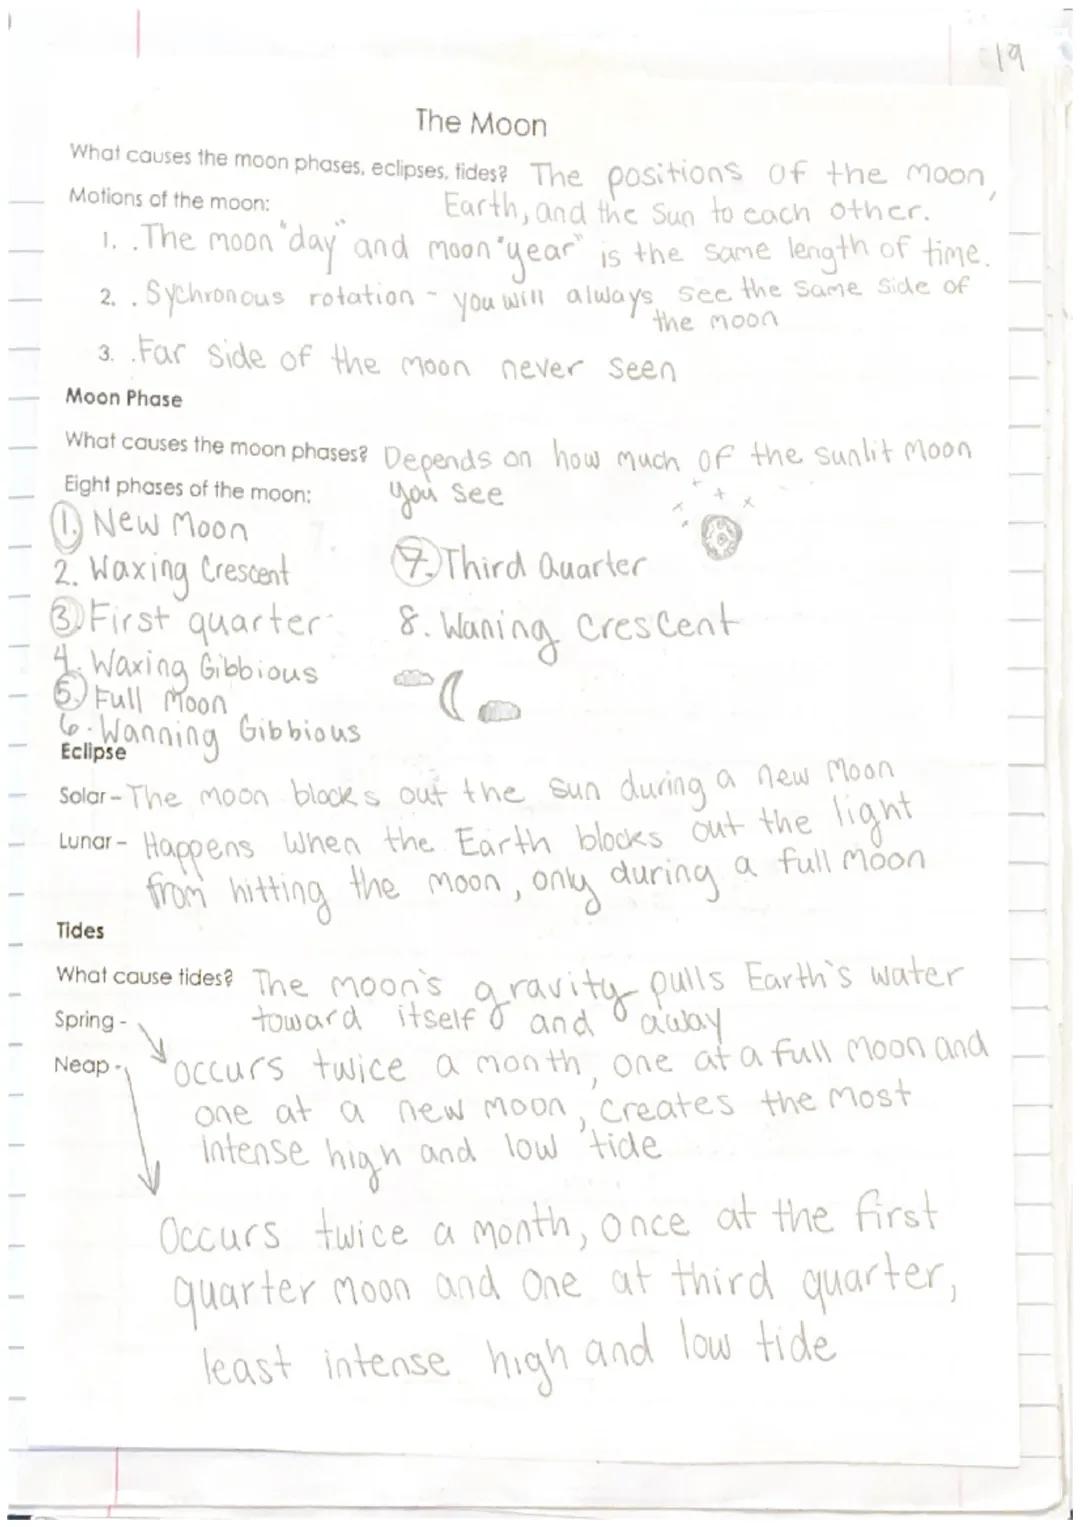 19
The Moon
What causes the moon phases, eclipses, tides? The positions of the Moon,
Motions of the moon: Earth, and the Sun to each other.
1. . The moon "day" and moon "year" is the same length of time.
2. . Sychronous rotation - you will always see the same side of
the moon
3. . Far side of the moon never seen
Moon Phase
What causes the moon phases? Depends on how much of the sunlit Moon
Eight phases of the moon: you see
1. New Moon
2. Waxing Crescent 7. Third Quarter
3. First quarter 8. Waning Crescent
4. Waxing Gibbious
5. Full Moon
6. Wanning Gibbious
Eclipse
Solar - The moon blocks out the sun during a new Moon
Lunar - Happens when the Earth blocks out the light
from hitting the moon, only during a full Moon
Tides
What cause tides? The moon's gravity pulls Earth's water
Spring - toward itself and away
Neap - occurs twice a month, one at a full Moon and
one at a new moon, creates the most
intense high and low tide
Occurs twice a month, once at the first
quarter moon and one at third quarter,
least intense high and low tide